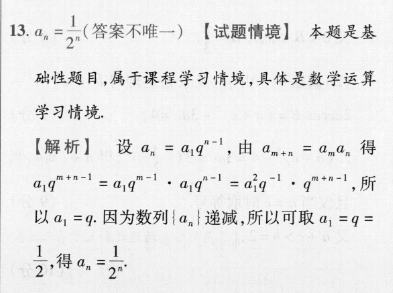 13. aₙ = 1/2ⁿ (答案不唯一) 【试题情境】 本题是基
础性题目,属于课程学习情境,具体是数学运算
学习情境.
【解析】 设 aₙ = a₁qⁿ⁻¹,由 aₘ₊ₙ = aₘaₙ 得
a₁qᵐ⁺ⁿ⁻¹ = a₁qᵐ⁻¹ · a₁qⁿ⁻¹ = a₁²q⁻¹ · qᵐ⁺ⁿ⁻¹,所
以 a₁ = q. 因为数列{aₙ}递减,所以可取 a₁ = q =
1/2,得 aₙ = 1/2ⁿ.